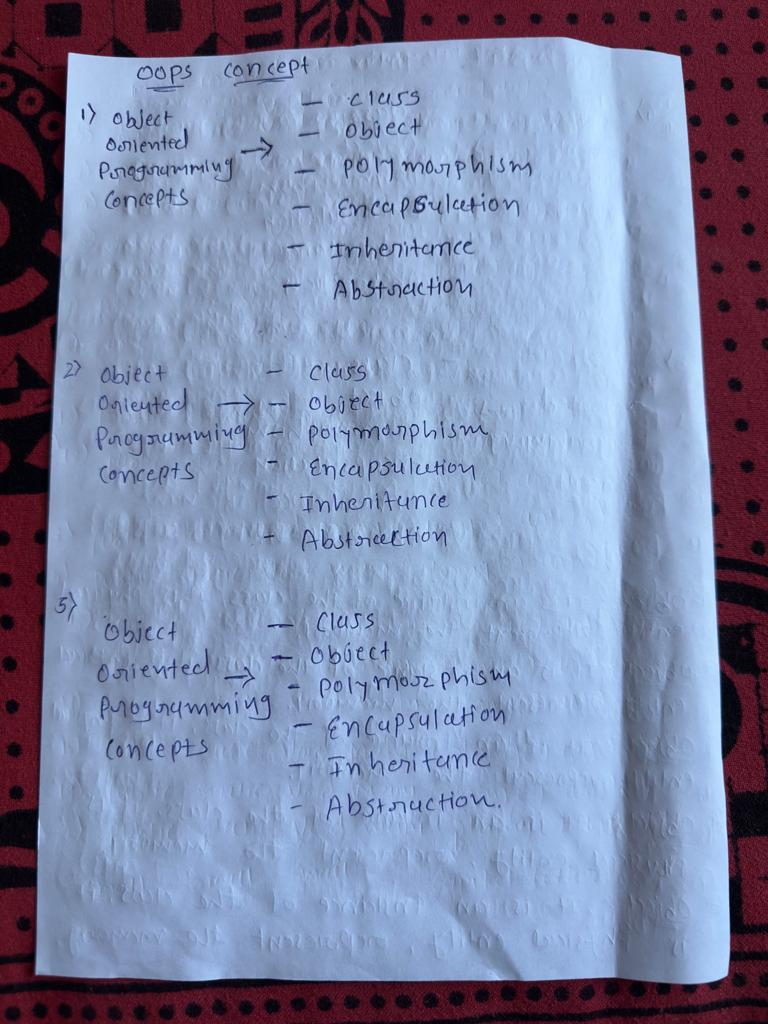 OOPS Concept
1) Object
Oriented
Programming
Concepts
→
- Class
- Object
- Polymorphism
- Encapsulation
- Inheritance
- Abstraction
2) Object
Oriented
Programming
Concepts
→
- Class
- Object
- Polymorphism
- Encapsulation
- Inheritance
- Abstraction
5)
Object
Oriented
Programming
Concepts
→
- Class
- Object
- Polymorphism
- Encapsulation
- Inheritance
- Abstraction.